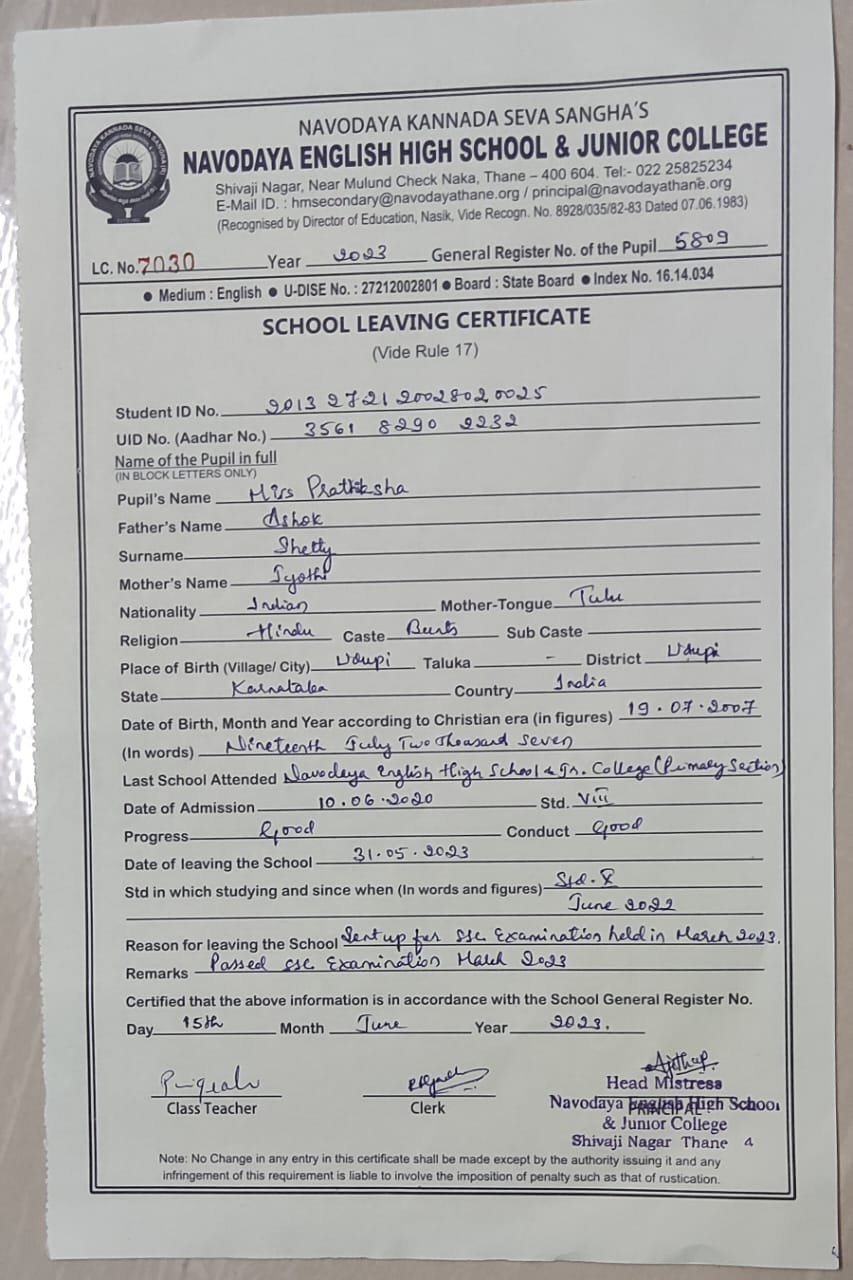 NAVODAYA KANNADA SEVA SANGHA'S
NAVODAYA ENGLISH HIGH SCHOOL & JUNIOR COLLEGE
Shivaji Nagar, Near Mulund Check Naka, Thane – 400 604. Tel:- 022 25825234
E-Mail ID. : hmsecondary@navodayathane.org / principal@navodayathane.org
(Recognised by Director of Education, Nasik, Vide Recogn. No. 8928/035/82-83 Dated 07.06.1983)
LC. No. 7030 Year 2023 General Register No. of the Pupil 5809
● Medium : English ● U-DISE No. : 27212002801 ● Board : State Board ● Index No. 16.14.034
SCHOOL LEAVING CERTIFICATE
(Vide Rule 17)
Student ID No. 2013 2721 2002802 0025
UID No. (Aadhar No.) 3561 8290 2232
Name of the Pupil in full
(IN BLOCK LETTERS ONLY)
Pupil's Name Miss Prathiksha
Father's Name Ashok
Surname Shetty
Mother's Name Jyothi
Nationality Indian Mother-Tongue Tulu
Religion Hindu Caste Bunts Sub Caste
Place of Birth (Village/ City) Udupi Taluka - District Udupi
State Karnataka Country India
Date of Birth, Month and Year according to Christian era (in figures) 19.07.2007
(In words) Nineteenth July Two Thousand Seven
Last School Attended Navodaya English High School & Jr. College (Primary Section)
Date of Admission 10.06.2020 Std. VIII
Progress Good Conduct Good
Date of leaving the School 31.05.2023
Std in which studying and since when (In words and figures) Std. X
June 2022
Reason for leaving the School Sent up for SSC Examination held in March 2023.
Remarks Passed SSC Examination March 2023
Certified that the above information is in accordance with the School General Register No.
Day 15th Month June Year 2023.
Class Teacher
Clerk
Head Mistress
PRINCIPAL
Navodaya English High School
& Junior College
Shivaji Nagar Thane 4
Note: No Change in any entry in this certificate shall be made except by the authority issuing it and any
infringement of this requirement is liable to involve the imposition of penalty such as that of rustication.